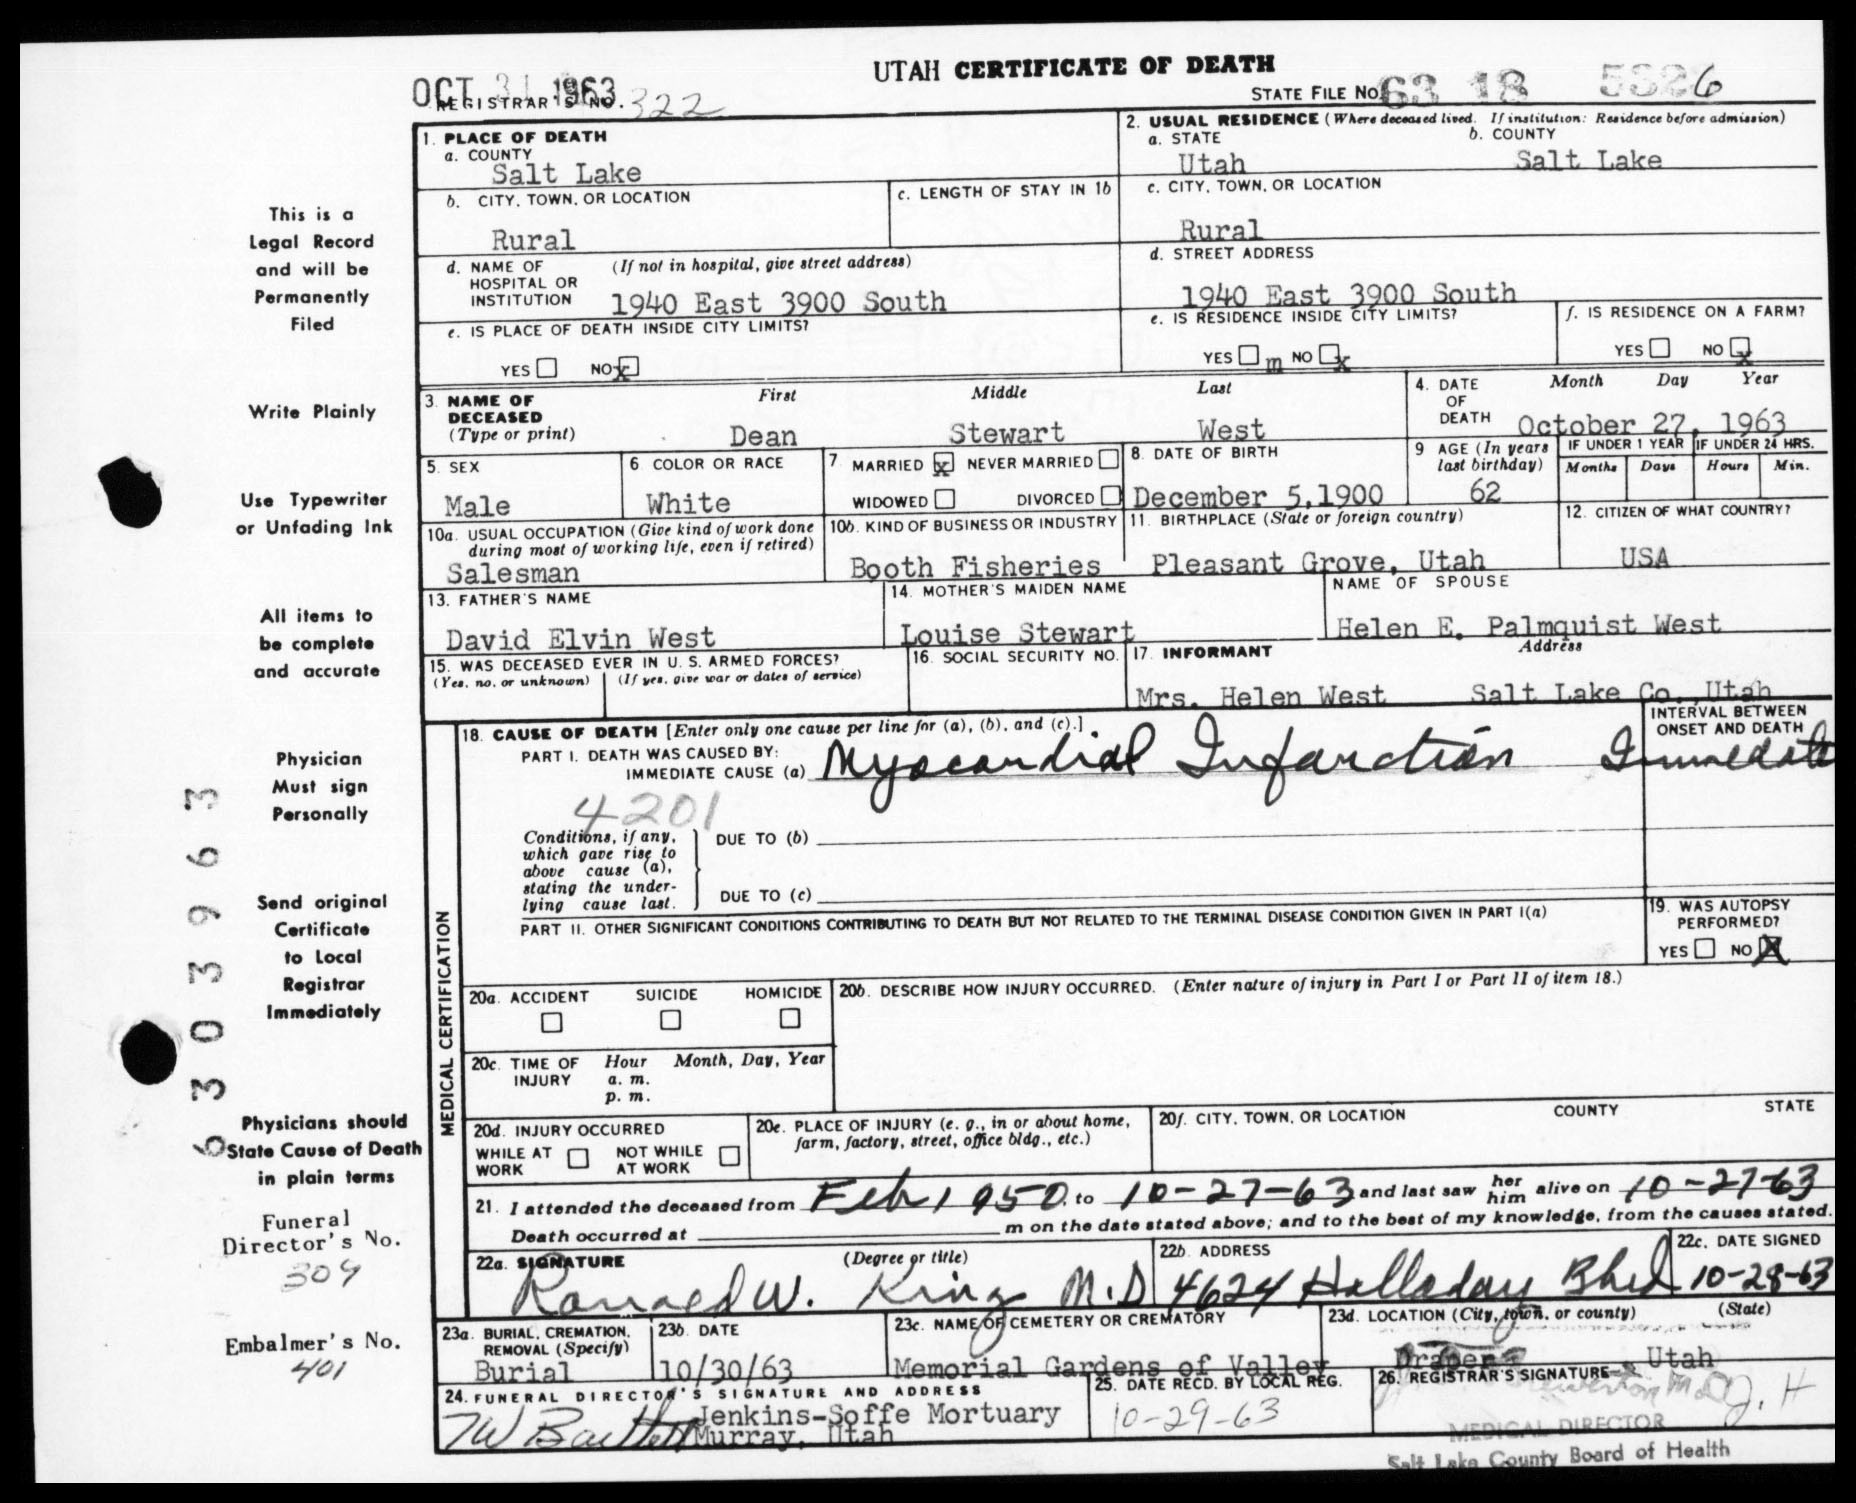 UTAH CERTIFICATE OF DEATH
OCT 31 1963
REGISTRAR'S NO. 322
STATE FILE NO. 63 18 5326
1. PLACE OF DEATH
a. COUNTY
Salt Lake
2. USUAL RESIDENCE (Where deceased lived. If institution: Residence before admission)
a. STATE b. COUNTY
Utah Salt Lake
b. CITY, TOWN, OR LOCATION
Rural
c. LENGTH OF STAY IN 1b
c. CITY, TOWN, OR LOCATION
Rural
d. NAME OF HOSPITAL OR INSTITUTION (If not in hospital, give street address)
1940 East 3900 South
d. STREET ADDRESS
1940 East 3900 South
e. IS PLACE OF DEATH INSIDE CITY LIMITS?
YES NO x
e. IS RESIDENCE INSIDE CITY LIMITS?
YES m NO x
f. IS RESIDENCE ON A FARM?
YES NO x
3. NAME OF DECEASED (Type or print)
First Middle Last
Dean Stewart West
4. DATE OF DEATH Month Day Year
October 27, 1963
5. SEX
Male
6. COLOR OR RACE
White
7. MARRIED x NEVER MARRIED
WIDOWED DIVORCED
8. DATE OF BIRTH
December 5,1900
9 AGE (In years last birthday)
62
IF UNDER 1 YEAR
Months Days
IF UNDER 24 HRS.
Hours Min.
10a. USUAL OCCUPATION (Give kind of work done during most of working life, even if retired)
Salesman
10b. KIND OF BUSINESS OR INDUSTRY
Booth Fisheries
11. BIRTHPLACE (State or foreign country)
Pleasant Grove, Utah
12. CITIZEN OF WHAT COUNTRY?
USA
13. FATHER'S NAME
David Elvin West
14. MOTHER'S MAIDEN NAME
Louise Stewart
NAME OF SPOUSE
Helen E. Palmquist West
15. WAS DECEASED EVER IN U. S. ARMED FORCES?
(Yes, no, or unknown) (If yes, give war or dates of service)
16. SOCIAL SECURITY NO.
17. INFORMANT Address
Mrs. Helen West Salt Lake Co. Utah
18. CAUSE OF DEATH [Enter only one cause per line for (a), (b), and (c).]
INTERVAL BETWEEN ONSET AND DEATH
PART I. DEATH WAS CAUSED BY:
IMMEDIATE CAUSE (a) Myocardial Infarction Immediate
4201
Conditions, if any, which gave rise to above cause (a), stating the underlying cause last.
DUE TO (b)
DUE TO (c)
PART II. OTHER SIGNIFICANT CONDITIONS CONTRIBUTING TO DEATH BUT NOT RELATED TO THE TERMINAL DISEASE CONDITION GIVEN IN PART I(a)
19. WAS AUTOPSY PERFORMED?
YES NO X
MEDICAL CERTIFICATION
20a. ACCIDENT SUICIDE HOMICIDE
20b. DESCRIBE HOW INJURY OCCURRED. (Enter nature of injury in Part I or Part II of item 18.)
20c. TIME OF INJURY Hour Month, Day, Year
a. m.
p. m.
20d. INJURY OCCURRED
WHILE AT WORK NOT WHILE AT WORK
20e. PLACE OF INJURY (e. g., in or about home, farm, factory, street, office bldg., etc.)
20f. CITY, TOWN, OR LOCATION COUNTY STATE
21. I attended the deceased from Feb 1950, to 10-27-63 and last saw her him alive on 10-27-63
Death occurred at m on the date stated above; and to the best of my knowledge, from the causes stated.
22a. SIGNATURE (Degree or title)
Ronald W. King M.D
22b. ADDRESS
4624 Holladay Blvd
22c. DATE SIGNED
10-28-63
23a. BURIAL, CREMATION, REMOVAL (Specify)
Burial
23b. DATE
10/30/63
23c. NAME OF CEMETERY OR CREMATORY
Memorial Gardens of Valley
23d. LOCATION (City, town, or county) (State)
Draper Utah
24. FUNERAL DIRECTOR'S SIGNATURE AND ADDRESS
TW Bartlett Jenkins-Soffe Mortuary
Murray, Utah
25. DATE RECD. BY LOCAL REG.
10-29-63
26. REGISTRAR'S SIGNATURE
J. H
MEDICAL DIRECTOR
Salt Lake County Board of Health
This is a
Legal Record
and will be
Permanently
Filed
Write Plainly
Use Typewriter
or Unfading Ink
All items to
be complete
and accurate
Physician
Must sign
Personally
Send original
Certificate
to Local
Registrar
Immediately
Physicians should
State Cause of Death
in plain terms
Funeral
Director's No.
309
Embalmer's No.
401
6303963